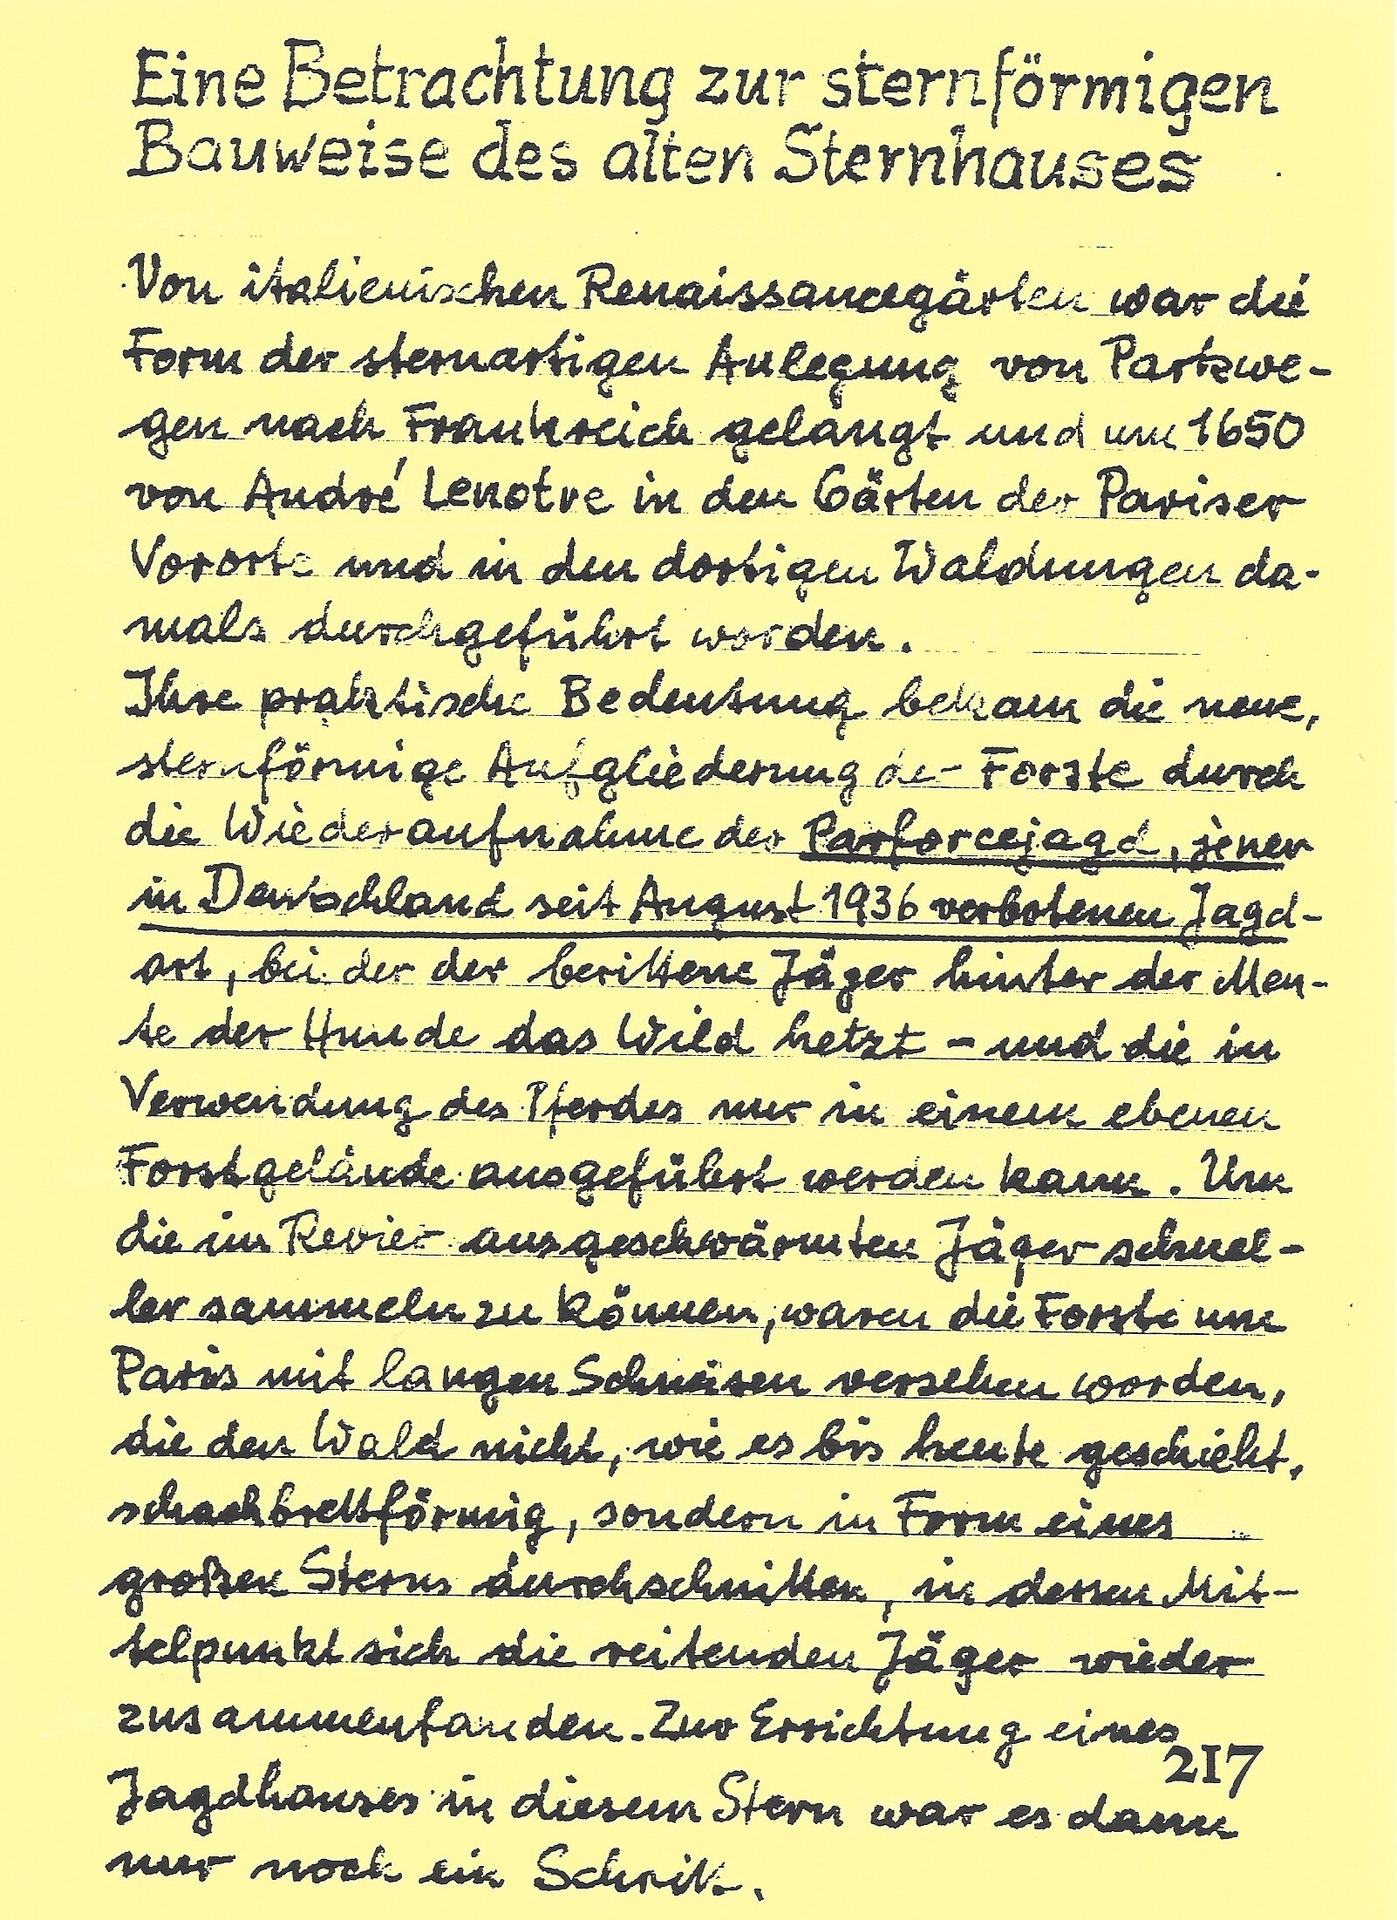 Eine Betrachtung zur sternförmigen
Bauweise des alten Sternhauses
Von italienischen Renaissancegärten war die
Form der sternartigen Anlegung von Parkwe-
gen nach Frankreich gelangt und um 1650
von André Lenotre in den Gärten der Pariser
Vororte und in den dortigen Waldungen da-
mals durchgeführt worden.
Ihre praktische Bedeutung bekam die neue,
sternförmige Aufgliederung der Forste durch
die Wiederaufnahme der Parforcejagd, jener
in Deutschland seit August 1936 verbotenen Jagd-
art, bei der der berittene Jäger hinter der Meu-
te der Hunde das Wild hetzt - und die in
Verwendung des Pferdes nur in einem ebenen
Forstgelände ausgeführt werden kann. Um
die im Revier ausgeschwärmten Jäger schnel-
ler sammeln zu können, waren die Forste um
Paris mit langen Schneisen versehen worden,
die den Wald nicht, wie es bis heute geschieht,
schachbrettförmig, sondern in Form eines
großen Sterns durchschnitten, in dessen Mit-
telpunkt sich die reitenden Jäger wieder
zusammenfanden. Zur Errichtung eines
217
Jagdhauses in diesem Stern war es dann
nur noch ein Schritt.